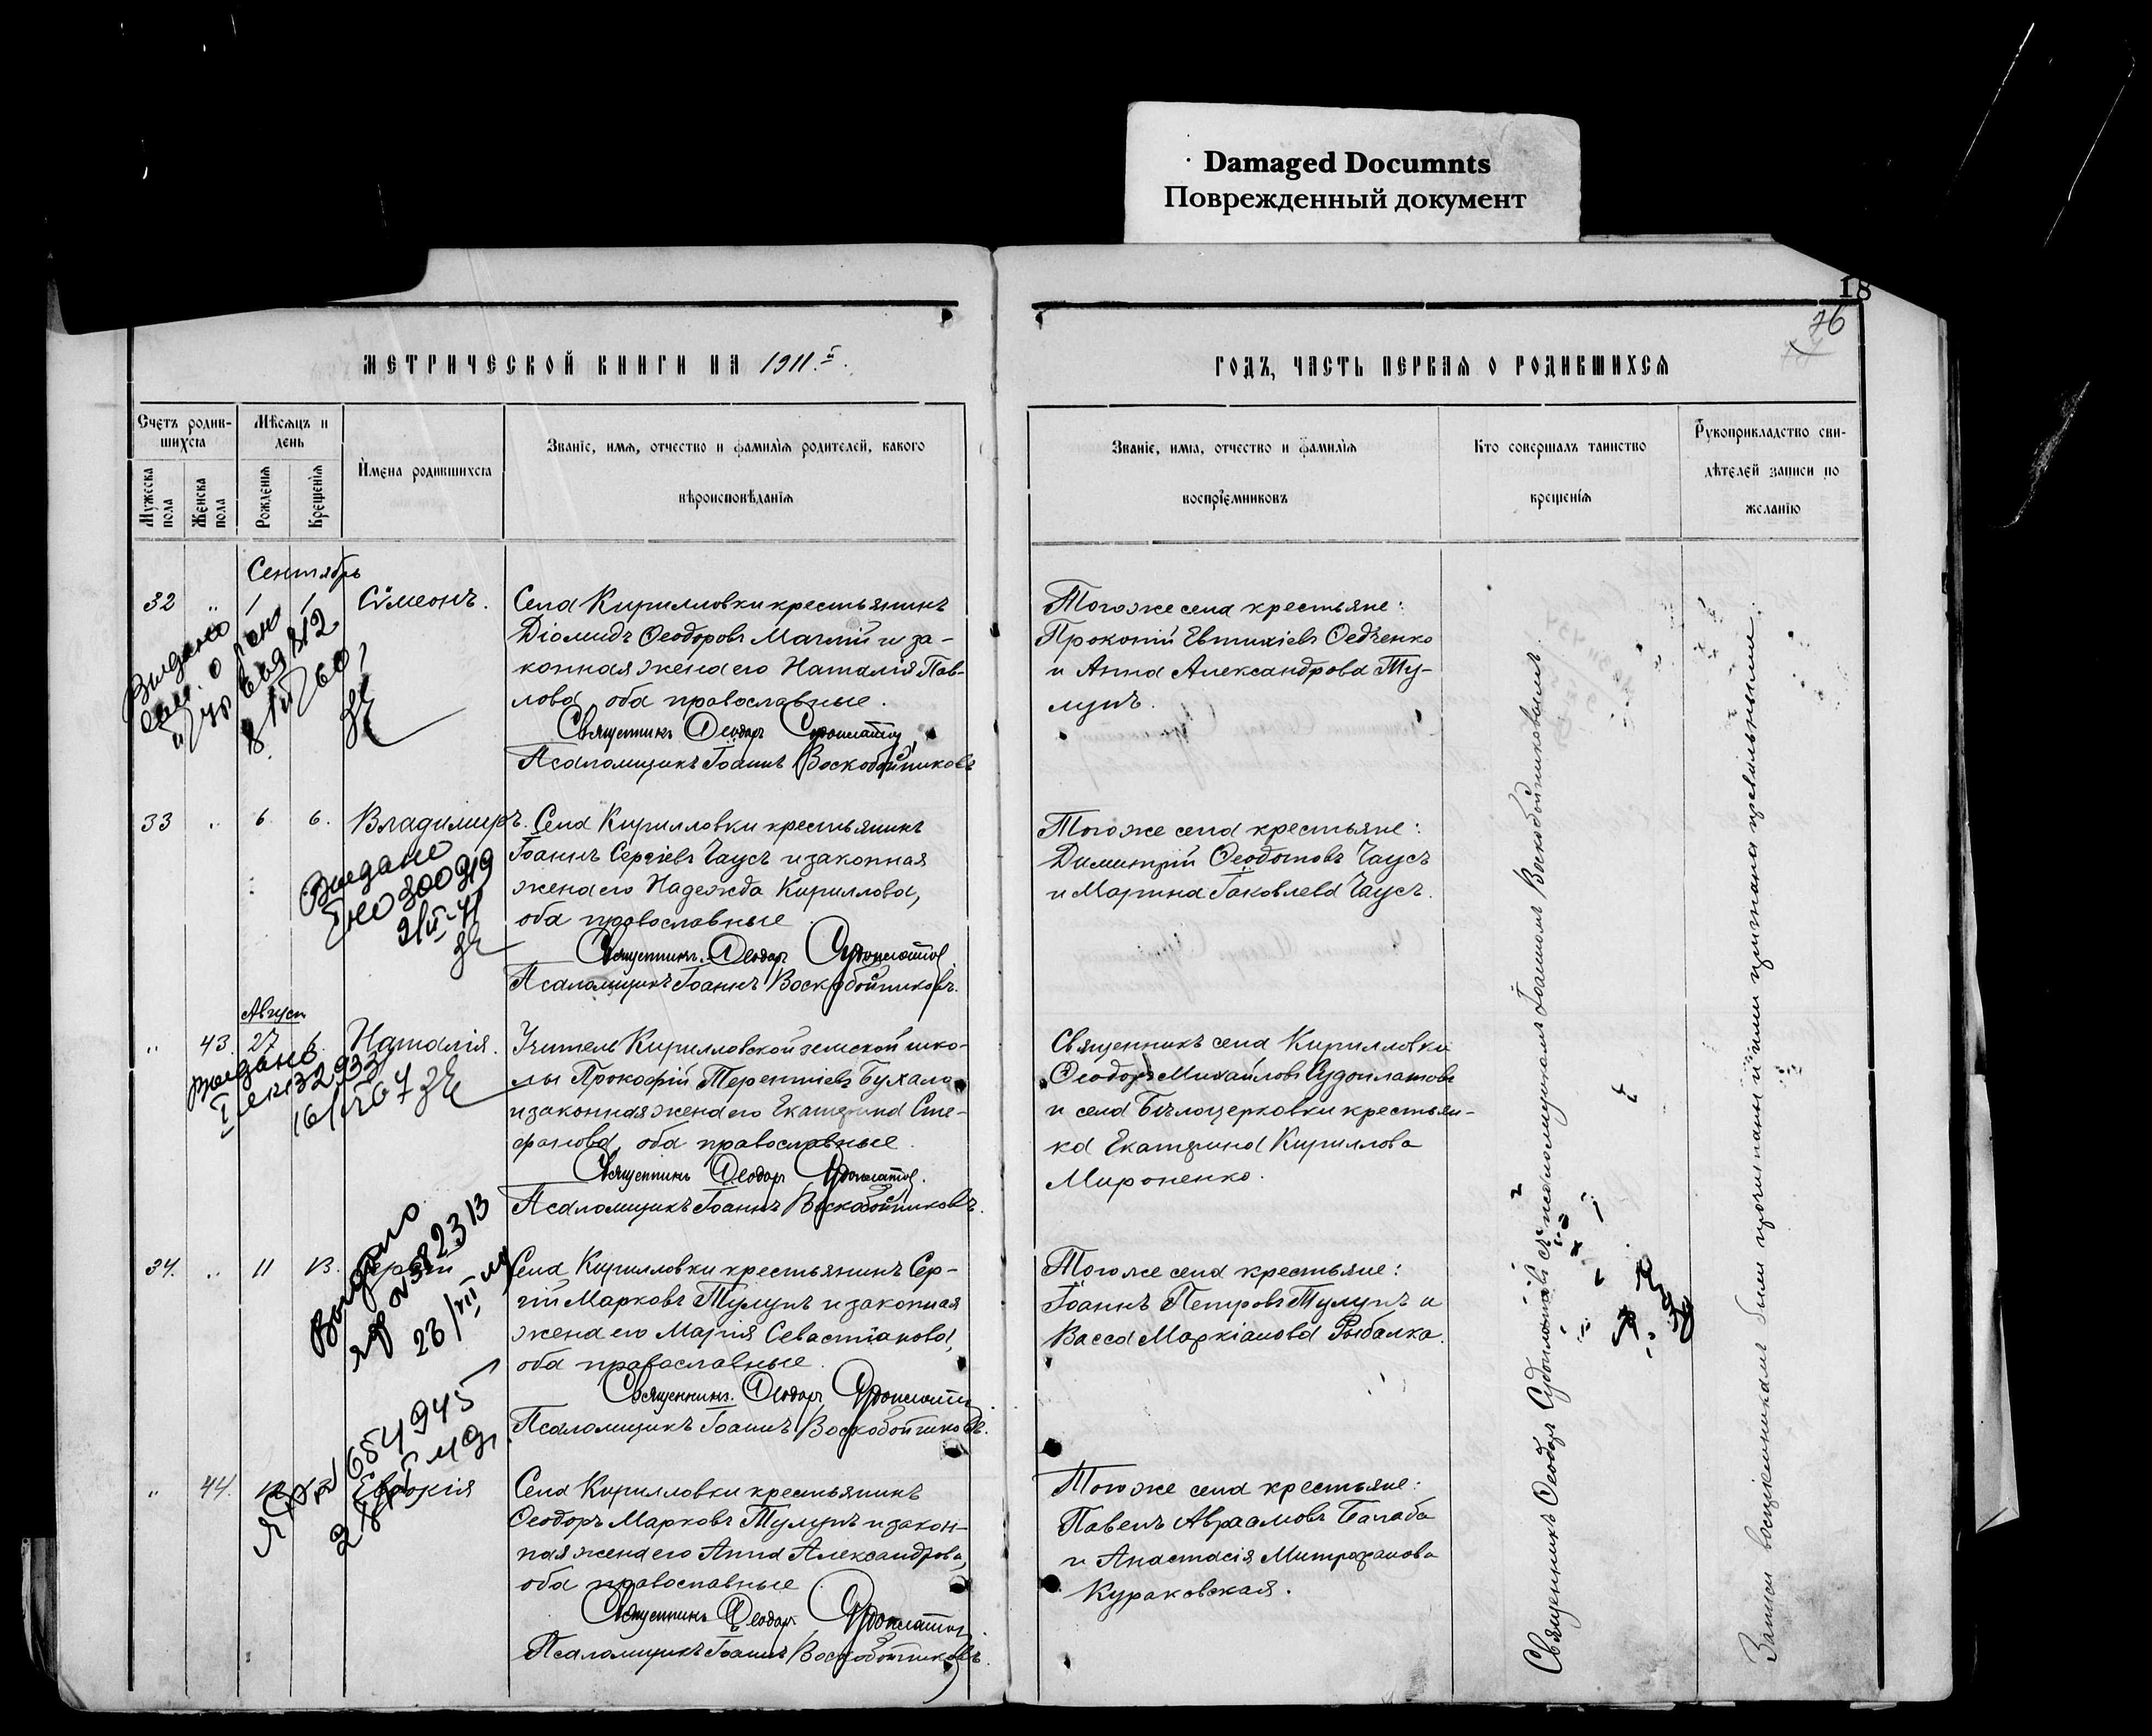 Damaged Documnts
Поврежденный документ
18
76
МЕТРИЧЕСКОЙ КНИГИ НА 1911.й
ГОДЪ, ЧАСТЬ ПЕРВАЯ О РОДИВШИХСЯ
Счетъ родив-
шихся
Мѣсяцъ и
день
Мужеска
пола
Женска
пола
Рожденія
Крещенія
Имена родившихся
Званіе, имя, отчество и фамилія родителей, какого
вѣроисповѣданія
Званіе, имя, отчество и фамилія
воспріемниковъ
Кто совершалъ таинство
крещенія
Рукоприкладство сви-
дѣтелей записи по
желанію
Сентябрь
32 " 1 1 Сѵмеонъ.
Села Кирилловки крестьянинъ
Діомидъ Ѳеодоровъ и за-
конная жена его Наталія Пав-
лова оба православные.
Священникъ Ѳеодоръ Судоплатов
Псаломщикъ Іоаннъ Воскобойниковъ
Того же села крестьяне:
Прокопій Евтихіевъ Ѳедченко
и Анна Александрова Ту-
лупъ.
Выдано
33 " 6. 6. Владиміръ.
Села Кирилловки крестьянинъ
Іоаннъ Сергіевъ Чаусъ и законная
жена его Надежда Кириллова,
оба православные
Священникъ Ѳеодоръ Судоплатов
Псаломщикъ Іоаннъ Воскобойниковъ.
Того же села крестьяне:
Димитрій Ѳеодотовъ Чаусъ
и Марина Іаковлева Чаусъ.
Выдано
300919
Август
" 43. 27 6. Наталія.
Учитель Кирилловской земской шко-
лы Прокофій Терентіевъ Бухало
и законная жена его Екатерина Сте-
фанова, оба православные.
Священникъ Ѳеодоръ Судоплатов.
Псаломщикъ Іоаннъ Воскобойниковъ.
Священникъ села Кирилловки
Ѳеодоръ Михайловъ Судоплатовъ
и села Бѣлоцерковки крестьян-
ка Екатерина Кириллова
Мироненко.
Выдано
34. " 11 13. Сергій
Села Кирилловки крестьянинъ Сер-
гій Марковъ Тулупъ и законная
жена его Марія Севастіанова,
оба православные.
Священникъ Ѳеодоръ Судоплатов
Псаломщикъ Іоаннъ Воскобойниковъ.
Того же села крестьяне:
Іоаннъ Петровъ Тулупъ и
Васса Маркіанова Рыбалка.
Выдано
654945
" 44. 12 13 Евдокія
Села Кирилловки крестьянинъ
Ѳеодоръ Марковъ Тулупъ и закон-
ная жена его Анна Александрова,
оба православные
Священникъ Ѳеодоръ Судоплатов
Псаломщикъ Іоаннъ Воскобойниковъ.
Того же села крестьяне:
Павелъ Авраамовъ Балаба
и Анастасія Митрофанова
Кураковская.
Священникъ Ѳеодоръ Судоплатовъ съ псаломщикомъ Іоанномъ Воскобойниковымъ.
Записи воспріемникамъ были прочитаны и ими признаны правильными.